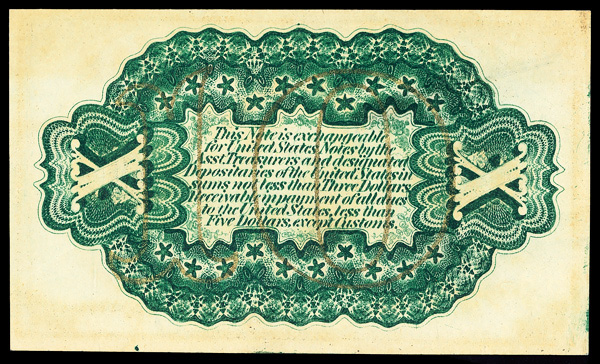 This Note is exchangeable
for United States Notes by the
Asst. Treasurers and designated
Depositaries of the United States in
sums not less than Three Dollars
Receivable in payment of all dues
to the United States, less than
Five Dollars, except Customs.
X
X